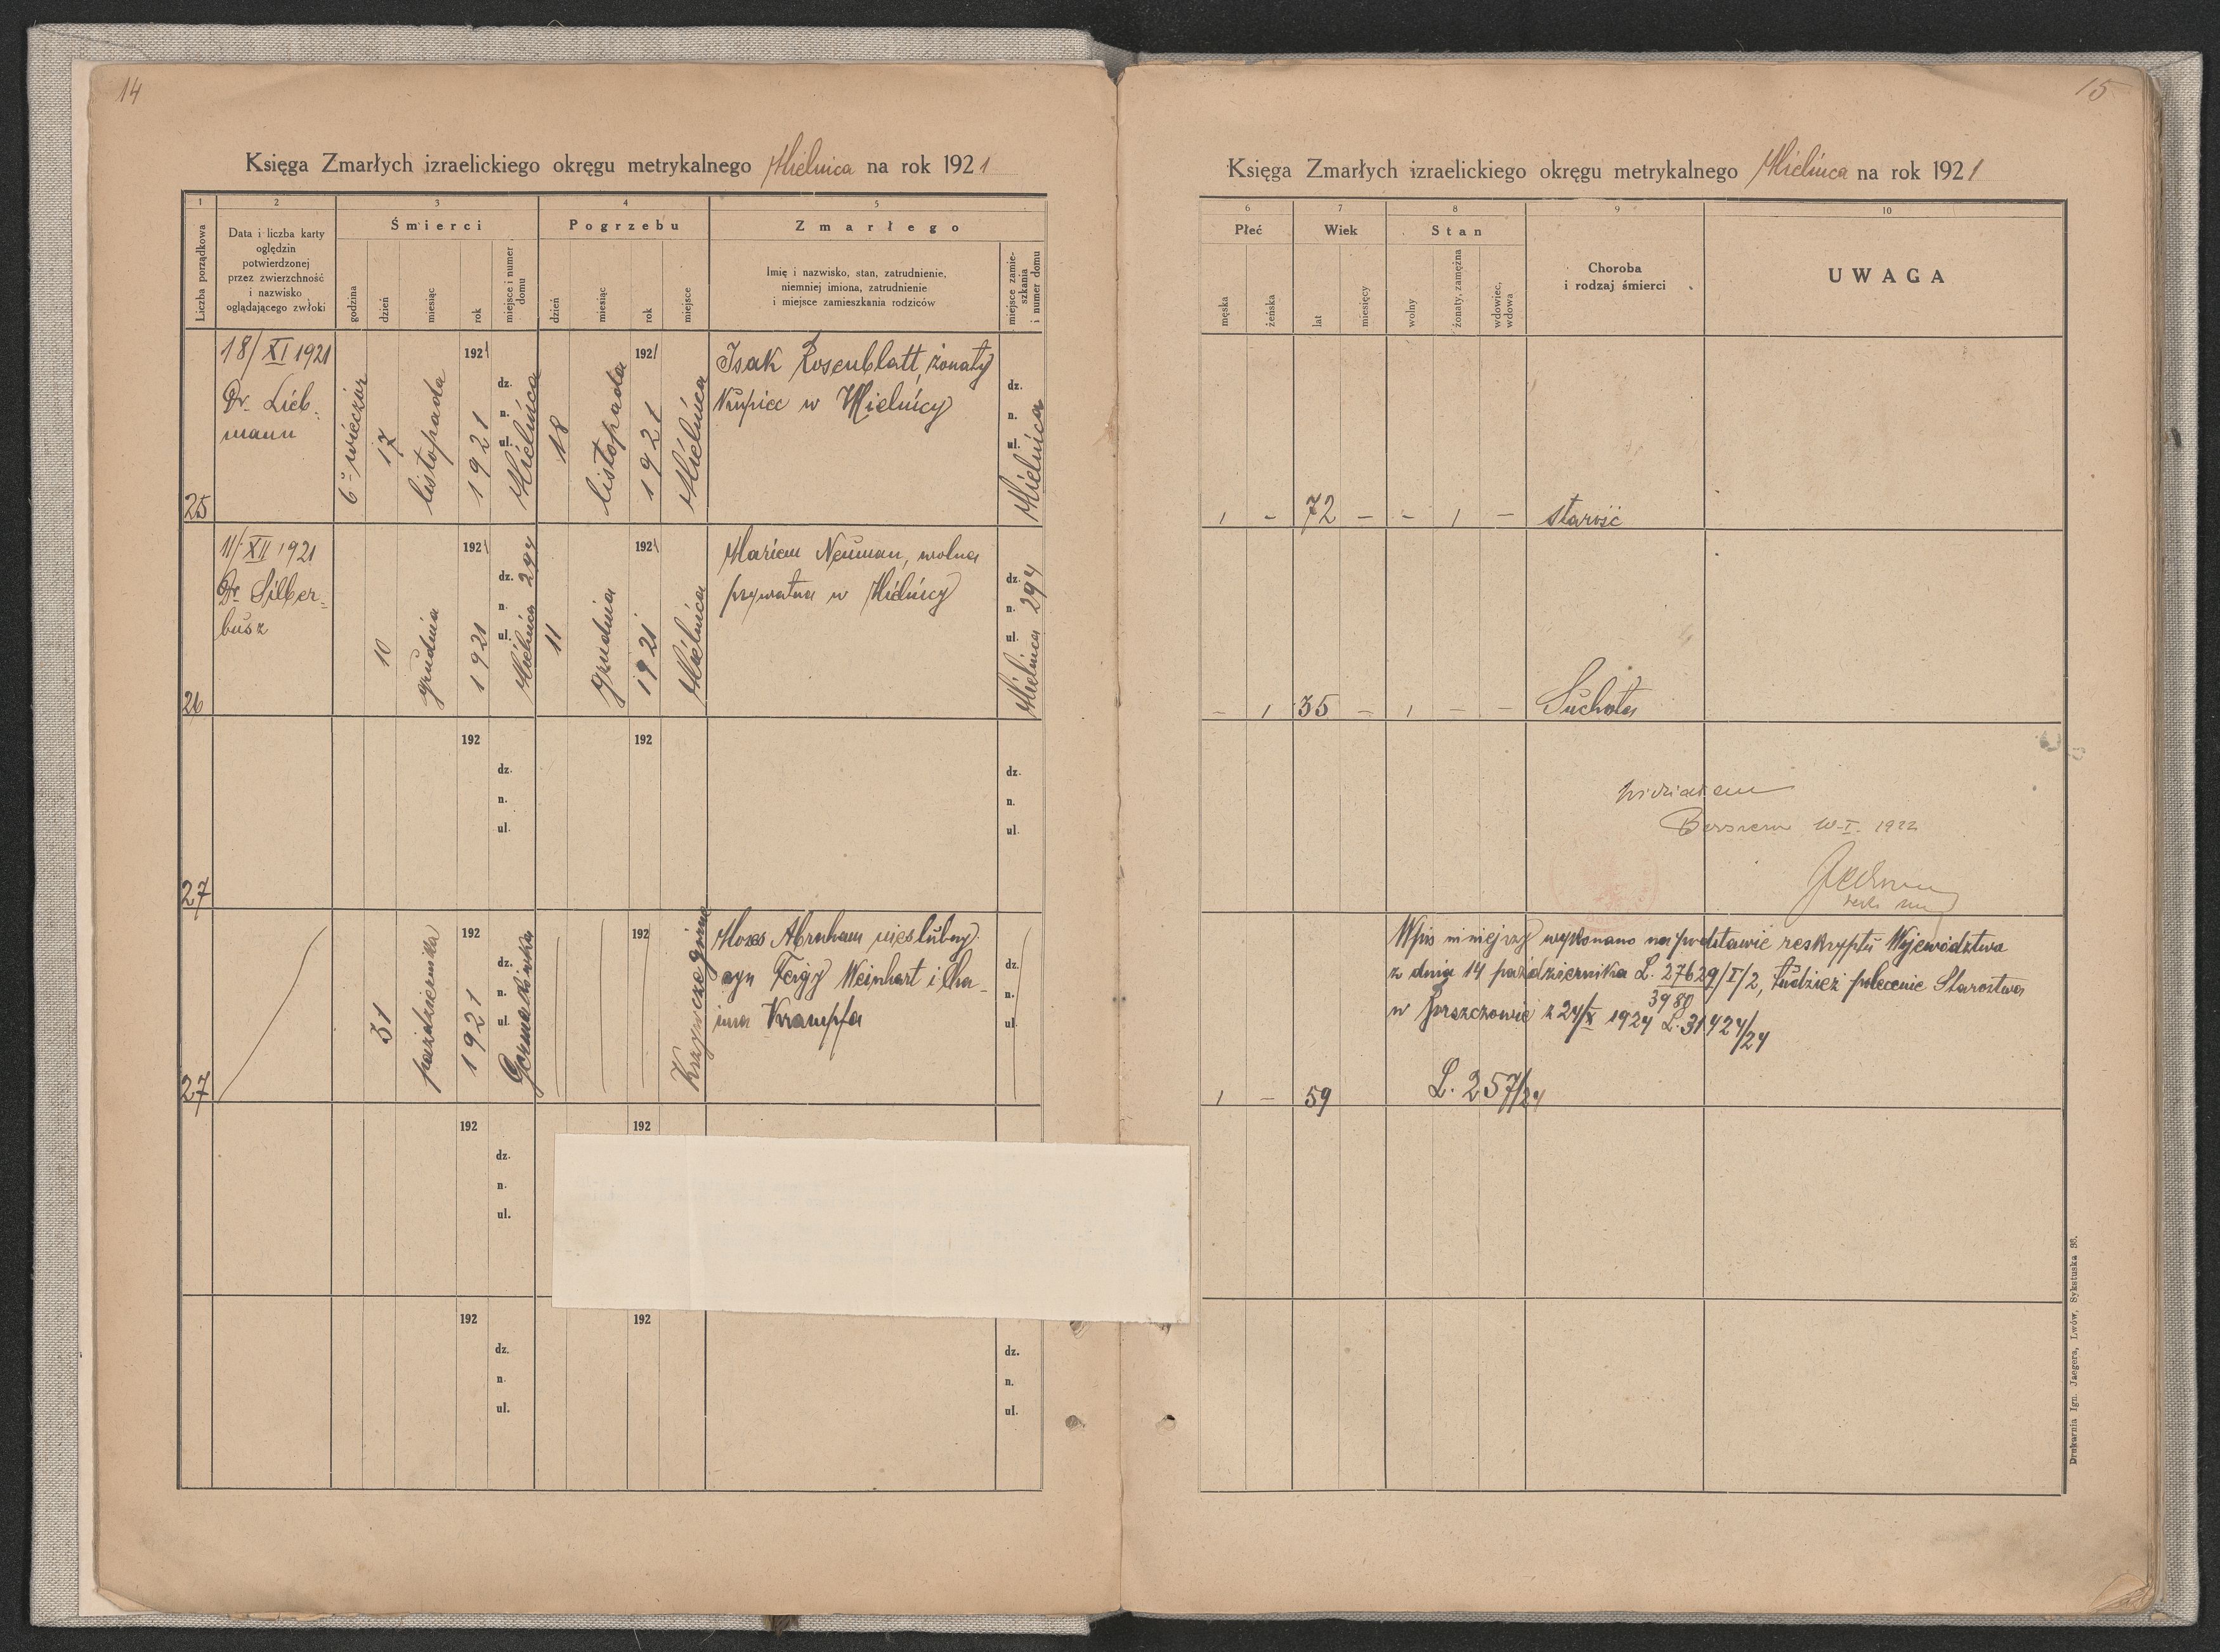 14
Księga Zmarłych izraelickiego okręgu metrykalnego Mielnica na rok 1921
1
2
3
4
5
Liczba porządkowa
Data i liczba karty
oględzin
potwierdzonej
przez zwierzchność
i nazwisko
oglądającego zwłoki
Śmierci
godzina
dzień
miesiąc
rok
miejsce i numer
domu
Pogrzebu
dzień
miesiąc
rok
miejsce
Zmarłego
Imię i nazwisko, stan, zatrudnienie,
niemniej imiona, zatrudnienie
i miejsce zamieszkania rodziców
miejsce zamie-
szkania
i numer domu
25
18/XI 1921
Dr. Lieb-
mann
6ª wieczór
17
listopada
1921
1921
dz.
n.
ul.
Mielnica
18
listopada
1921
1921
Mielnica
Isak Rosenblatt, żonaty
Kupiec w Mielnicy
dz.
n.
ul.
Mielnica
26
11/XII 1921
Dr. Silber-
busz
10
grudnia
1921
1921
dz.
n.
ul.
Mielnica 294
11
grudnia
1921
1921
Mielnica
Mariem Neuman, wolna
prywatna w Mielnicy
dz.
n.
ul.
Mielnica 294
27
192
dz.
n.
ul.
192
dz.
n.
ul.
27
31
października
192
1921
dz.
n.
ul.
192
Krzywcze górne
Mozes Abraham nieślubny
syn Feigy Weinhart i Cha-
ima Krampfa
dz.
n.
ul.
192
dz.
n.
ul.
192
192
dz.
n.
ul.
192
dz.
n.
ul.
15
Księga Zmarłych izraelickiego okręgu metrykalnego Mielnica na rok 1921
6
7
8
9
10
Płeć
męska
żeńska
Wiek
lat
miesięcy
Stan
wolny
żonaty, zamężna
wdowiec,
wdowa
Choroba
i rodzaj śmierci
UWAGA
1 - 72 - - 1 - starość
- 1 35 - 1 - - Suchoty
Widziałem
10-I. 1922
Wpis niniejszy wykonano na podstawie reskryptu Województwa
z dnia 14 października L. 27629/I/2, tudzież polecenie Starostwa
3980
w Borszczowie z 24/X 1924 L. 31424/24
1 - 59
L. 257/24
Drukarnia Ign. Jaegera, Lwów, Sykstuska 36.